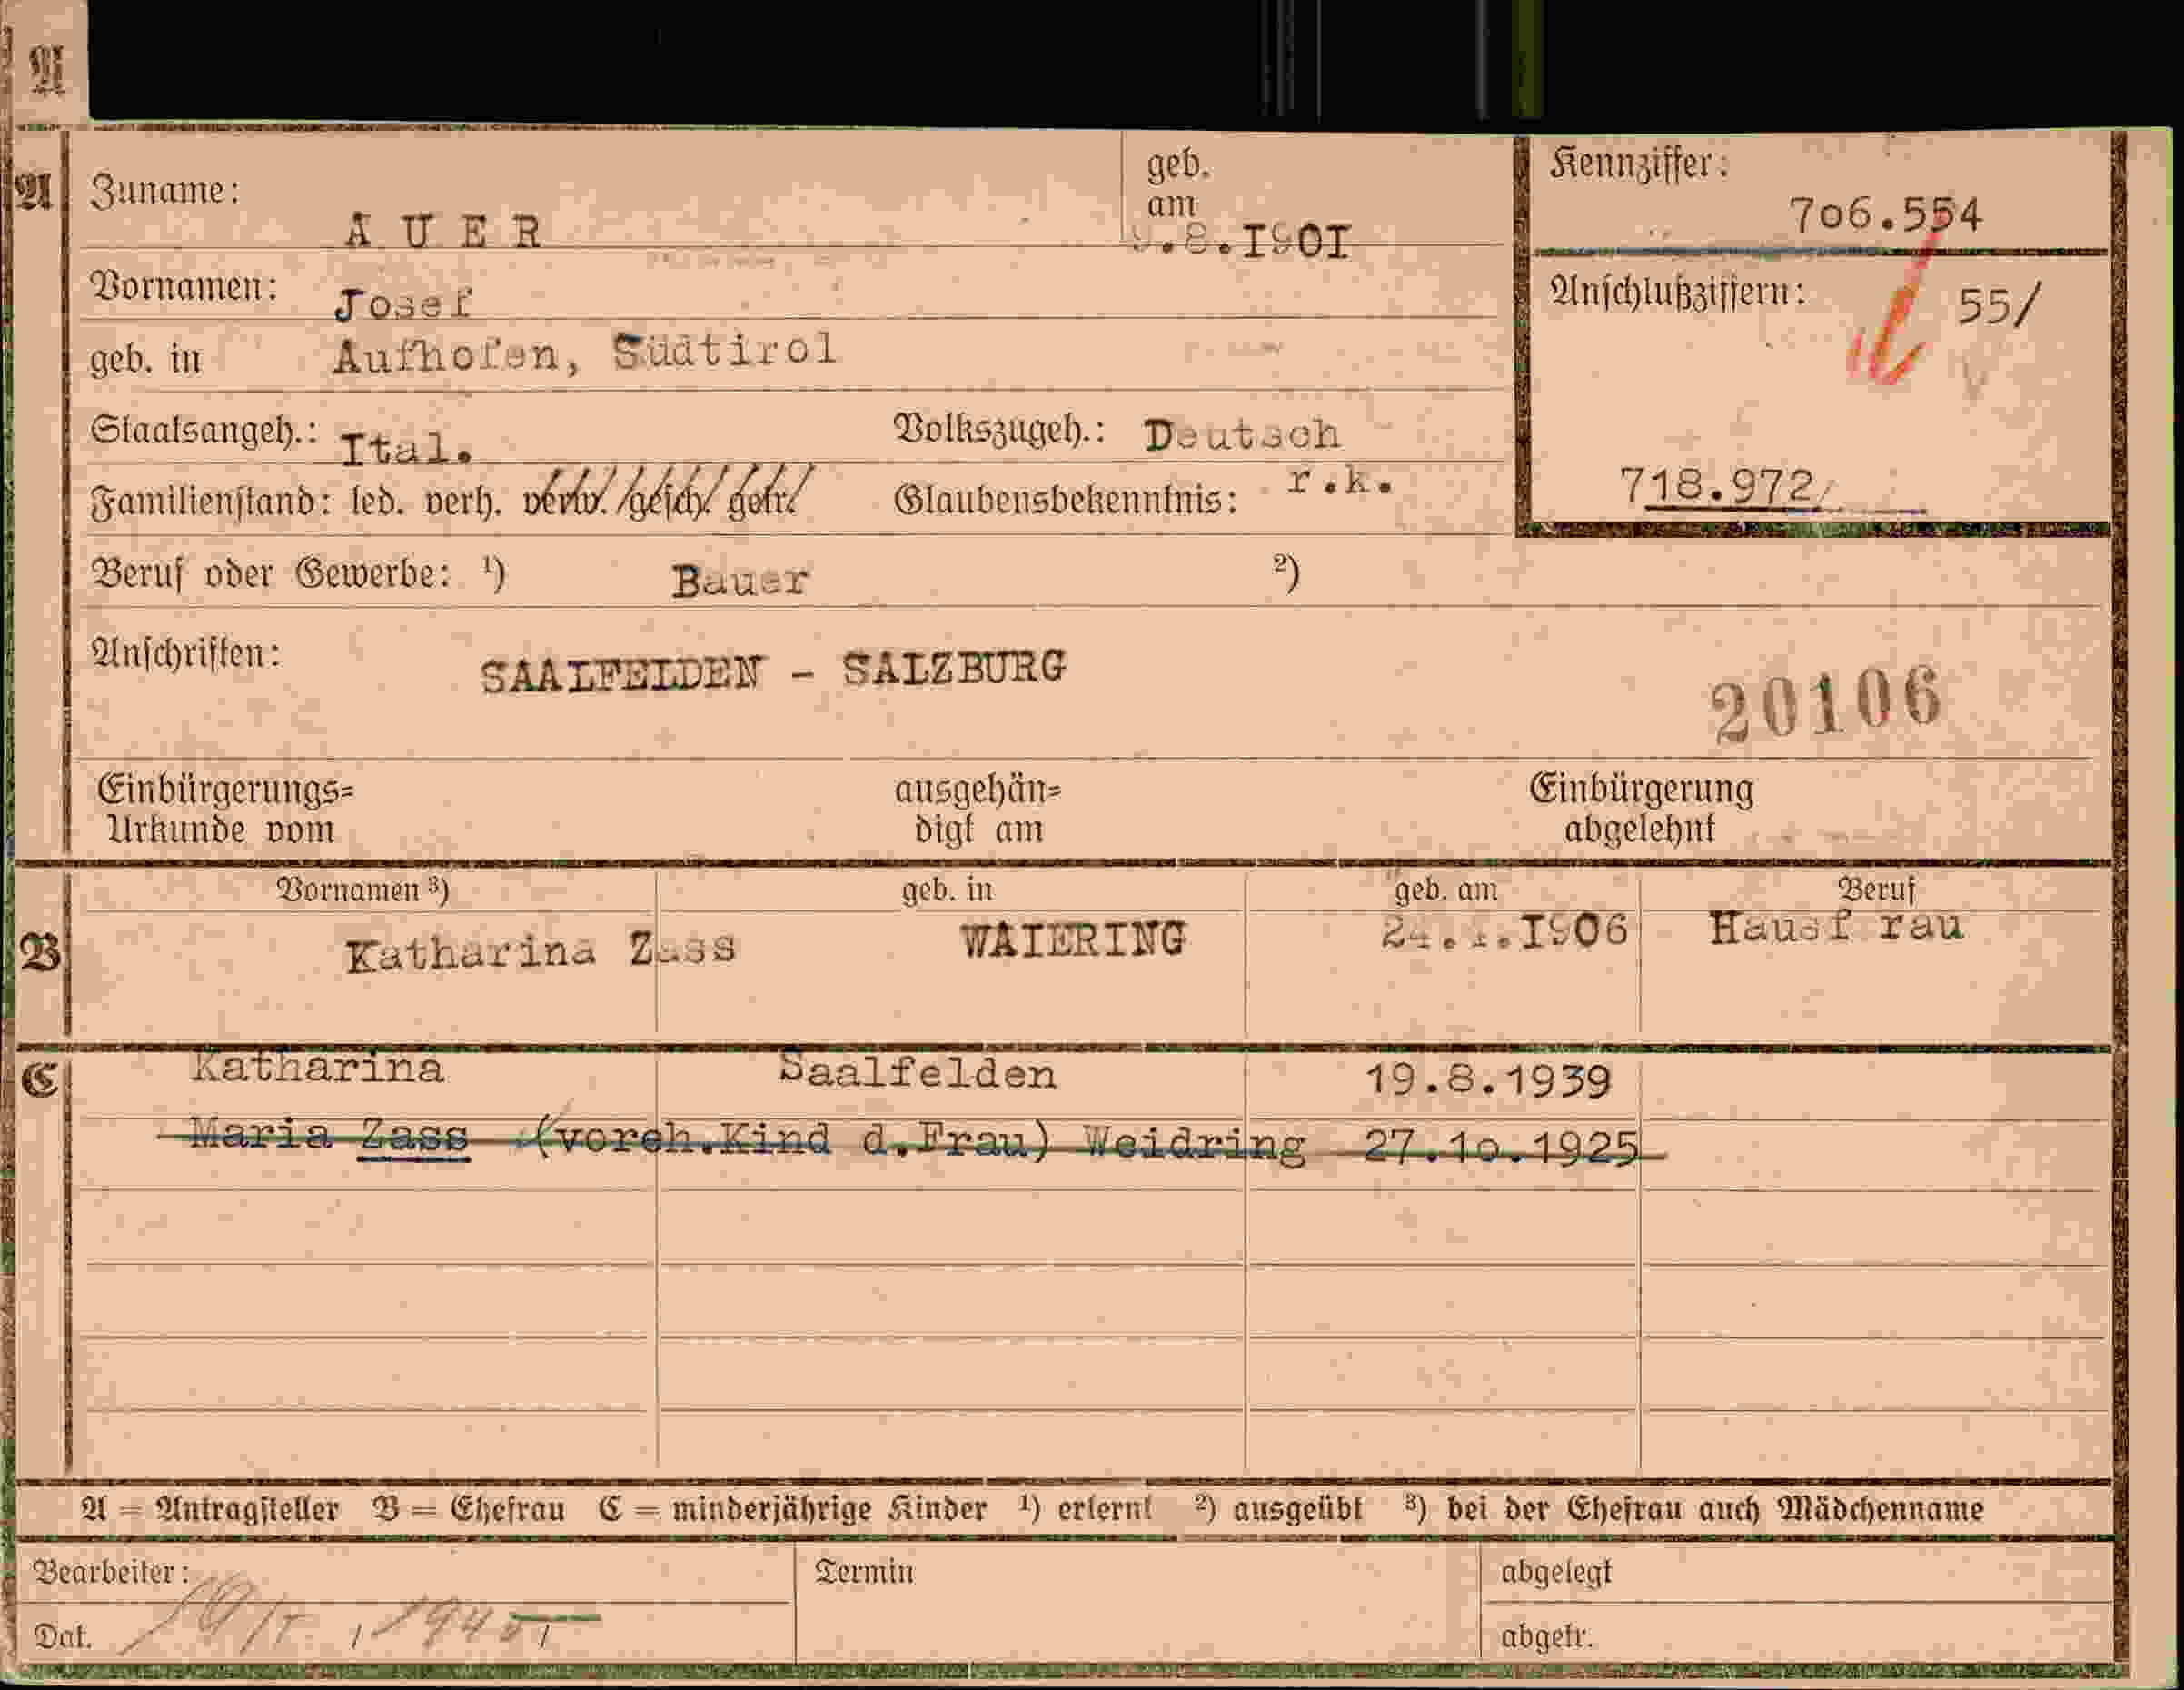 A
A
Zuname:
AUER
geb.
am
.8.I90I
Kennziffer:
7o6.554
Vornamen:
Josef
Anschlußziffern:
55/
geb. in
Aufhofen, Südtirol
Staatsangeh.: Ital.
Volkszugeh.: Deutsch
718.972
Familienstand: led. verh. verw. gesch. getr.
Glaubensbekenntnis: r.k.
Beruf oder Gewerbe: ¹) Bauer ²)
Anschriften:
SAALFELDEN - SALZBURG
20106
Einbürgerungs=
Urkunde vom
ausgehän=
digt am
Einbürgerung
abgelehnt
B
Vornamen ³) geb. in geb. am Beruf
Katharina Zass WAIERING I906 Hausf rau
C
Katharina Saalfelden 19.8.1939
Maria Zass (voreh.Kind d.Frau) Weidring 27.1o.1925
A = Antragsteller B = Ehefrau C = minderjährige Kinder ¹) erlernt ²) ausgeübt ³) bei der Ehefrau auch Mädchenname
Bearbeiter:
Termin
abgelegt
Dat.
abgetr.